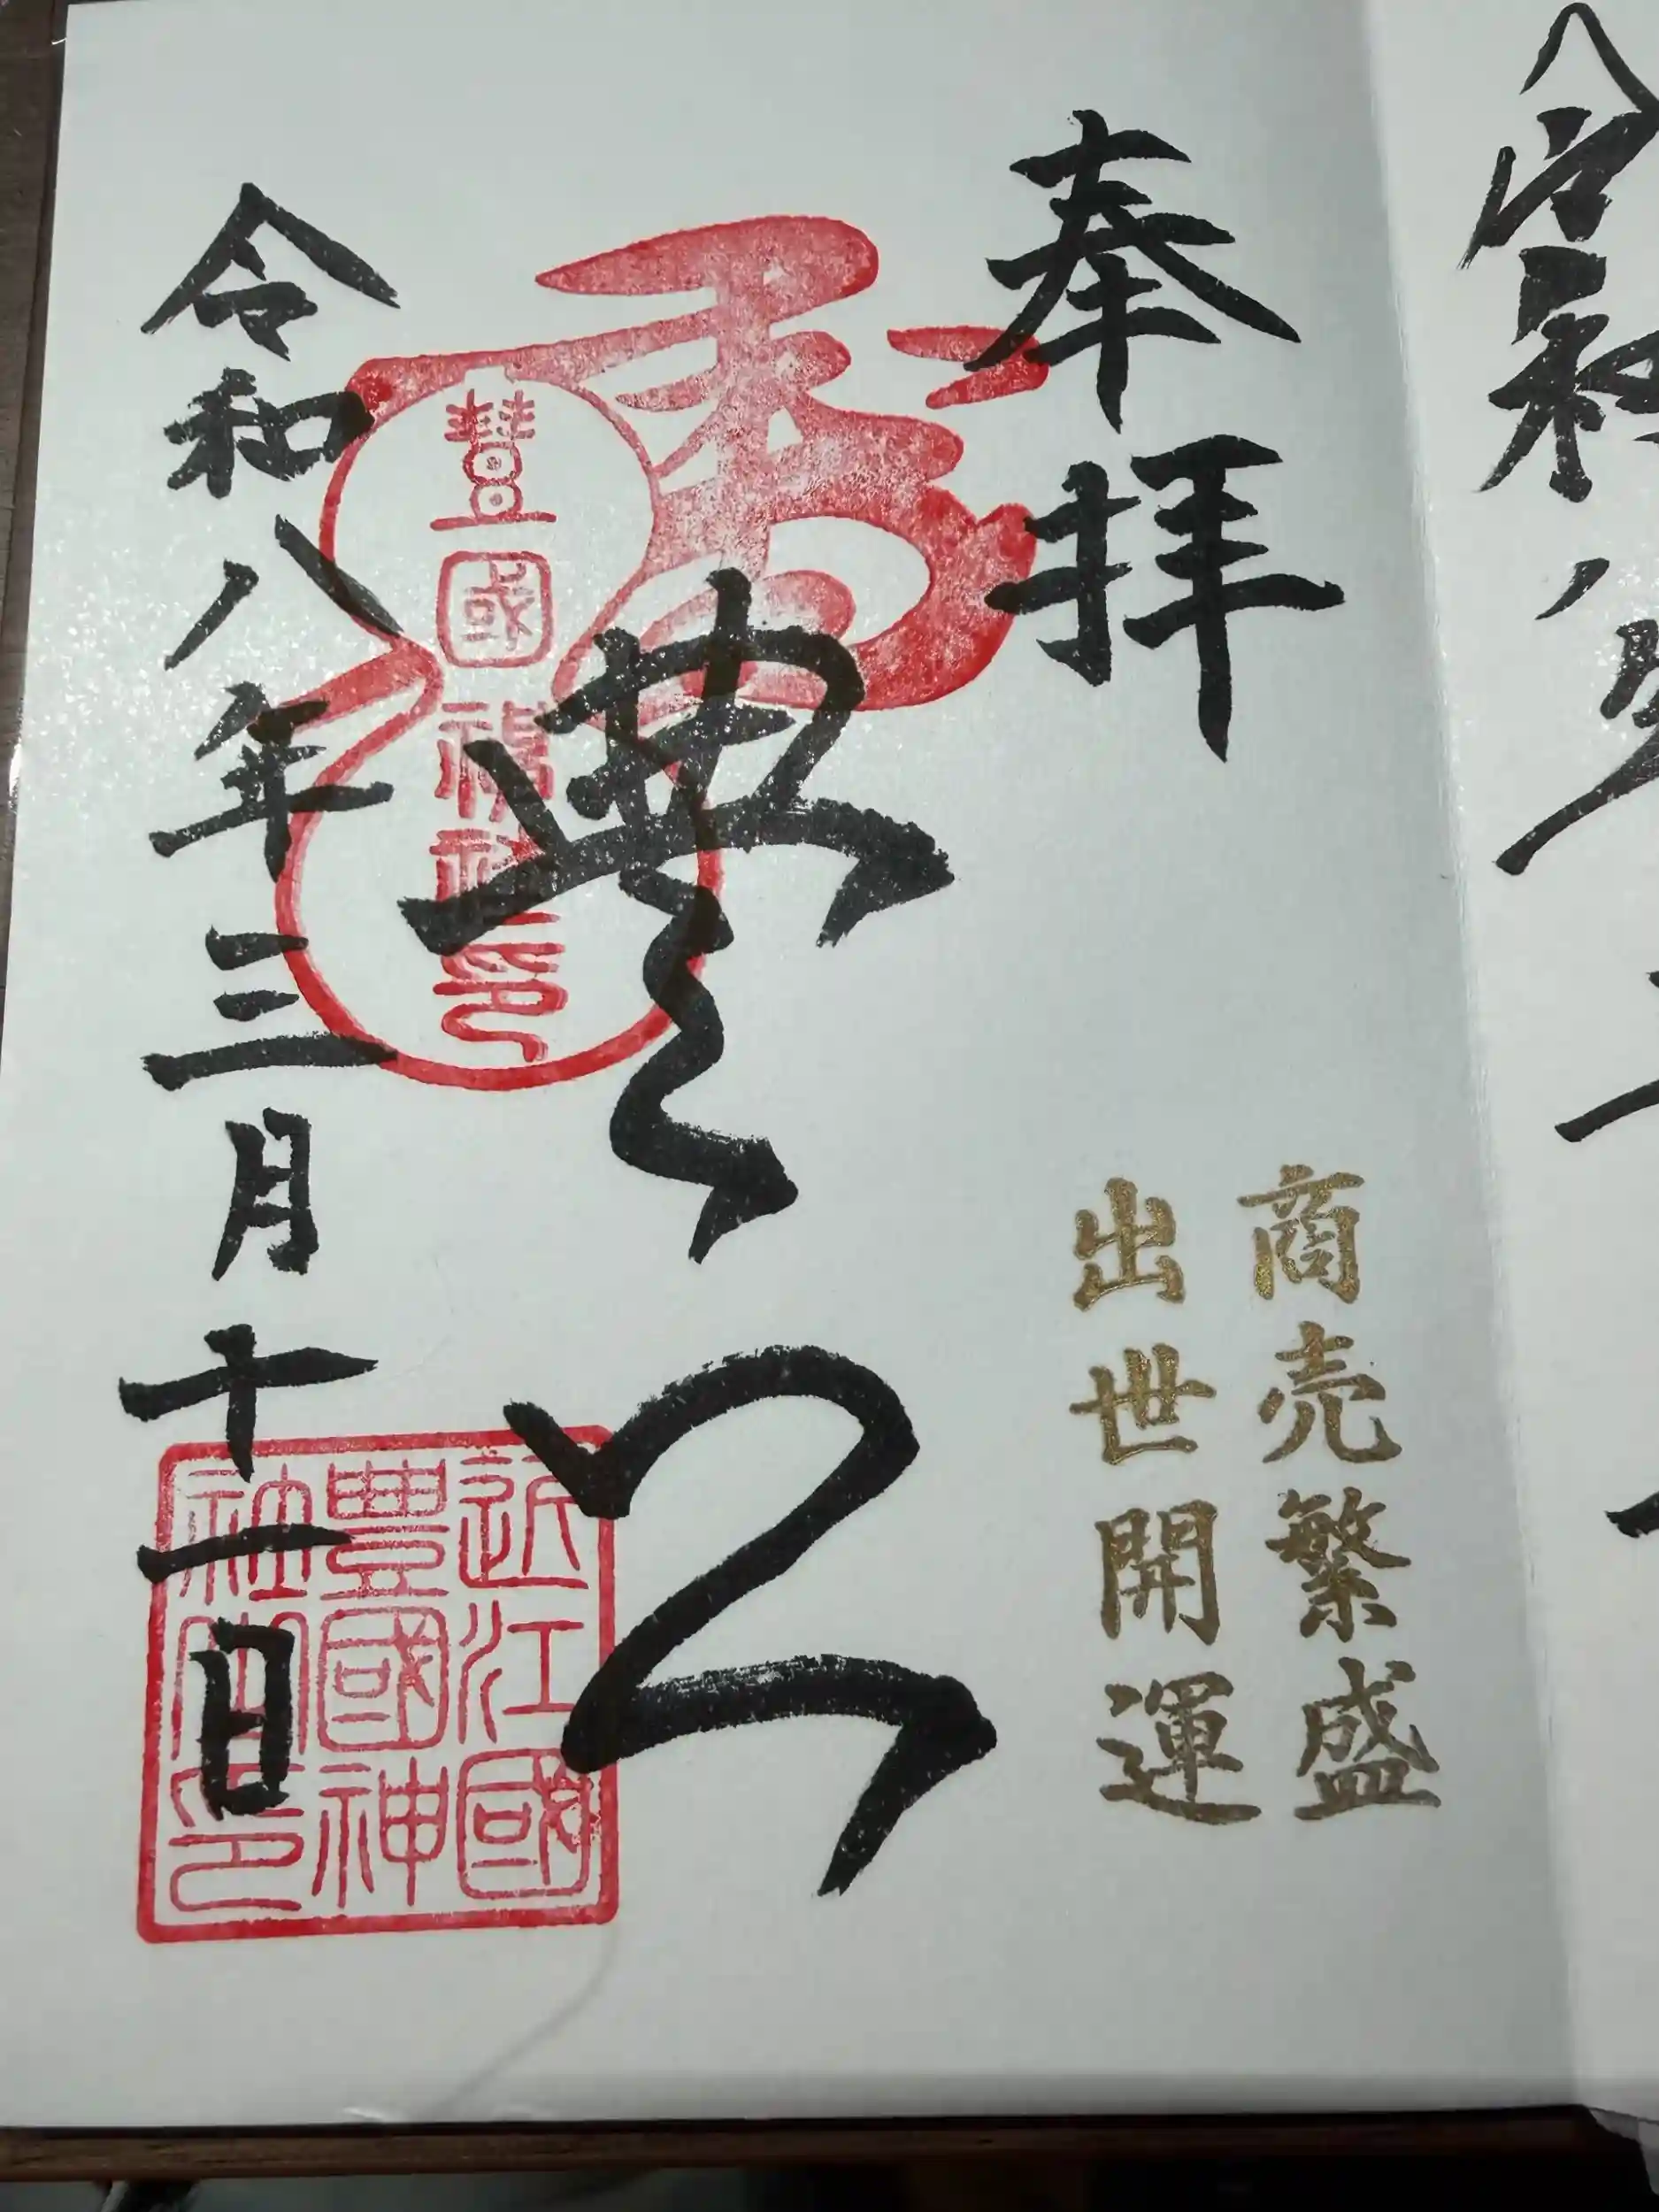 奉拝
商売繁盛
出世開運
豊公
豐國神社印
令和八年三月十一日
近江國
豊國神
社御印